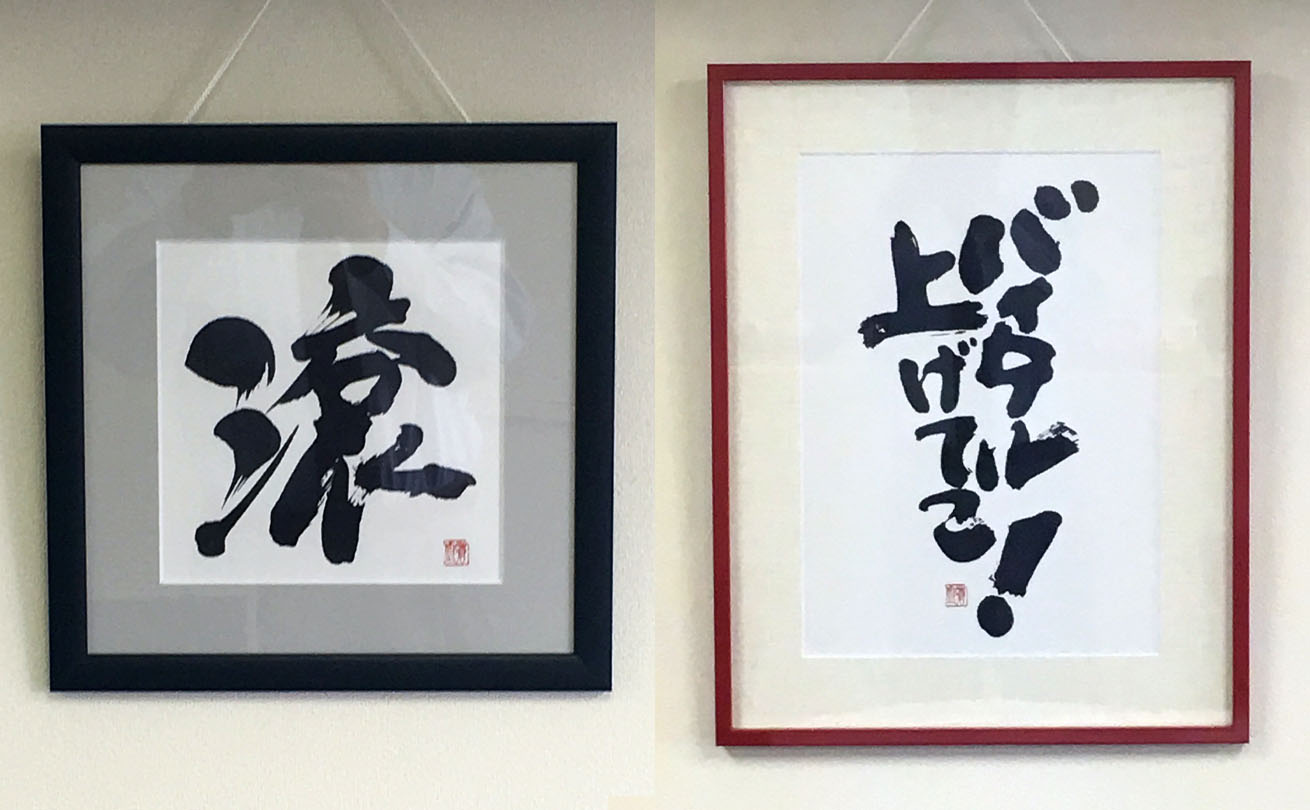 流
バイタル
上げていこ！